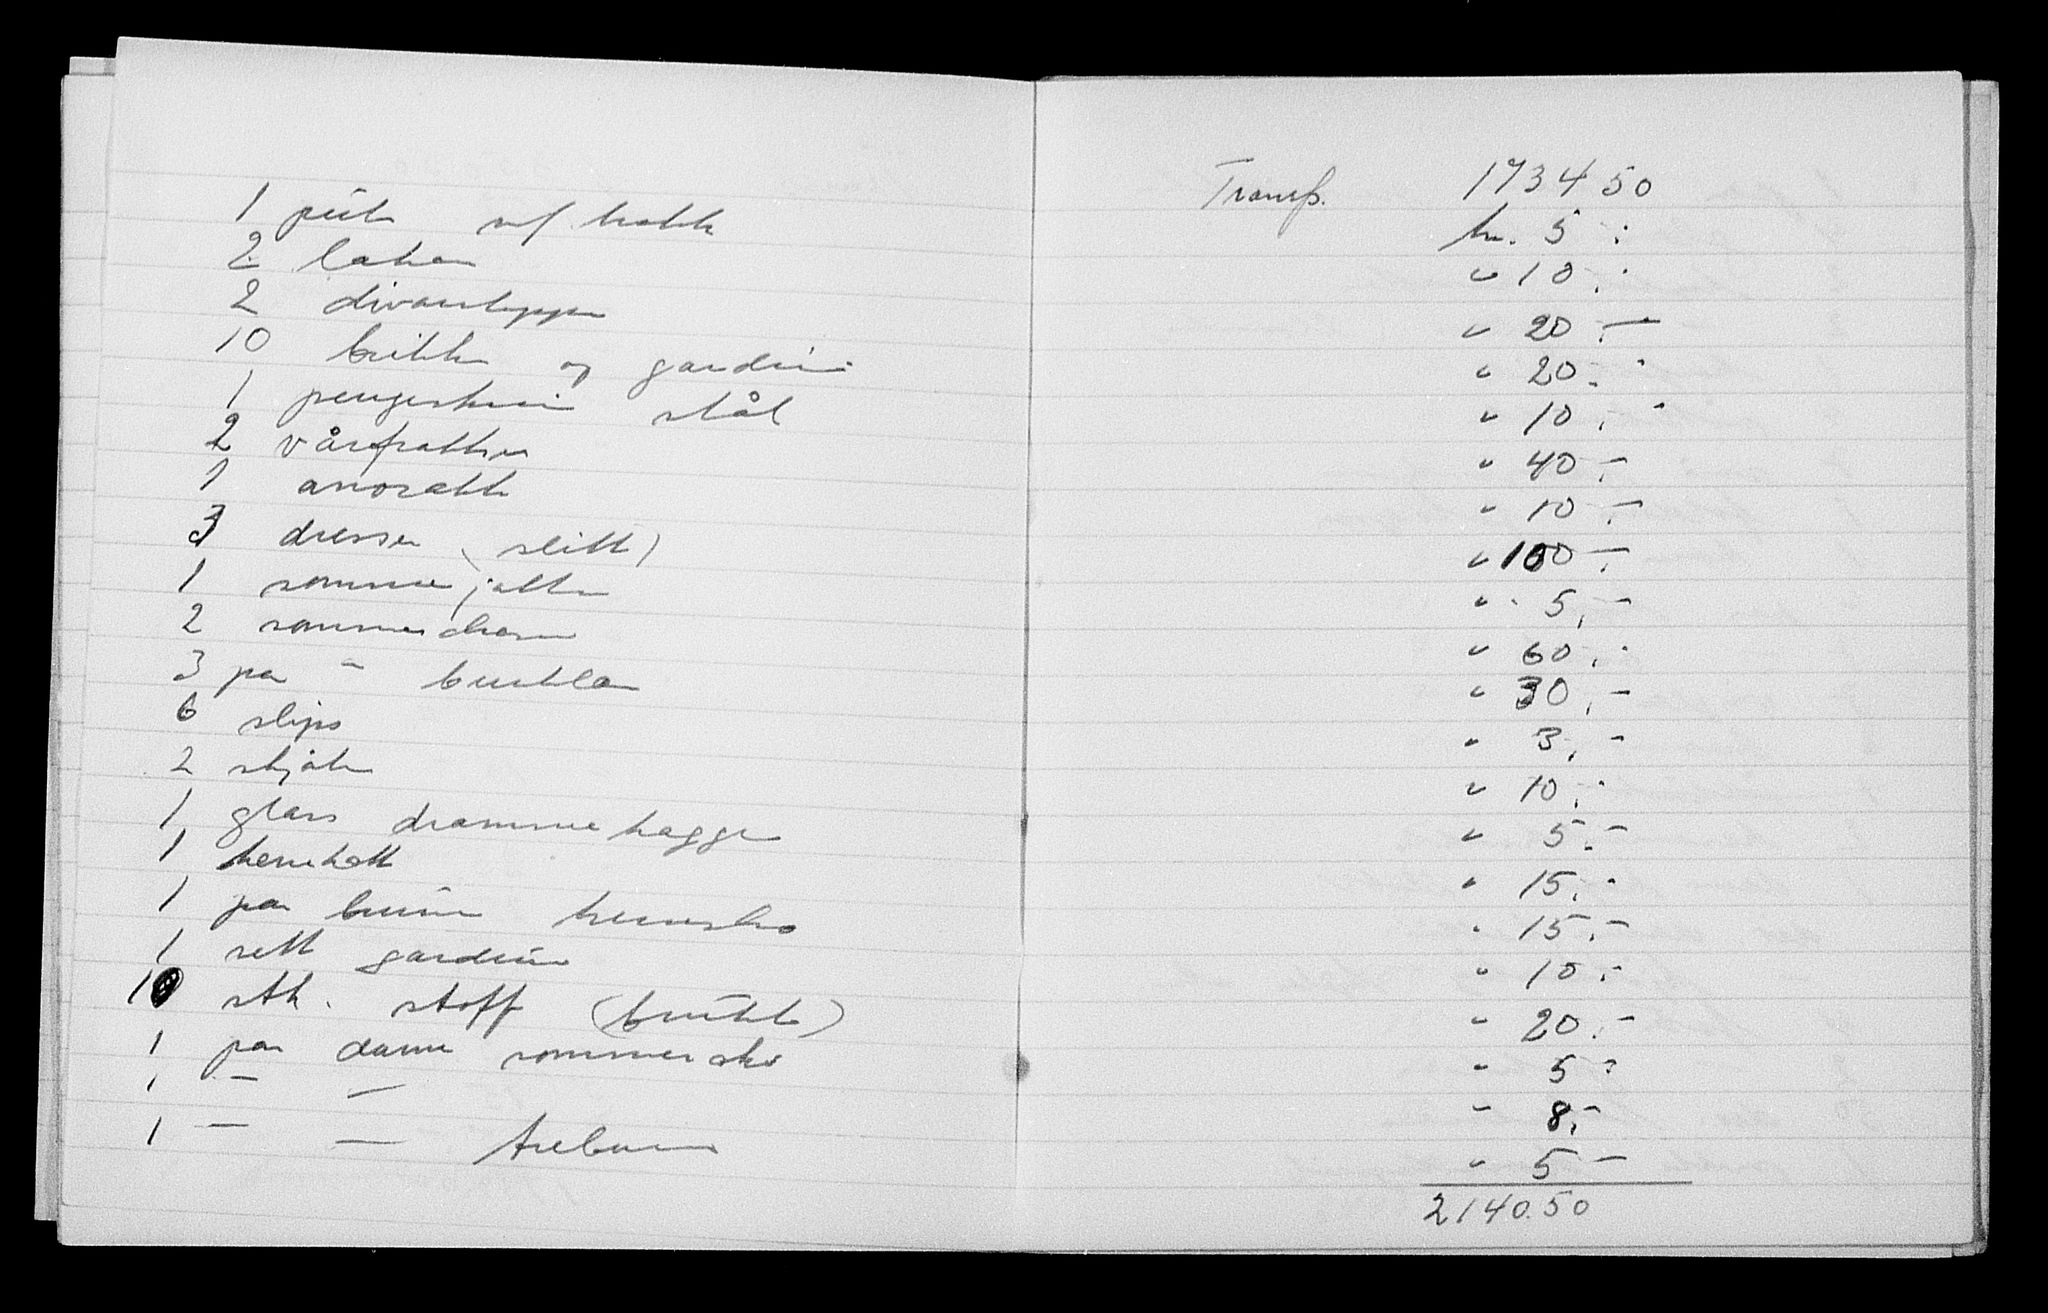 1 püte m/ trekk
2 laken
2 divantepper
10 brikker og gardiner
1 pengeskrin stål
2 vårfrakker
1 anorakk
3 dresser (slitt)
1 sommerjakke
2 sommerdresser
3 par – bukser
6 slips
2 skjorter
1 glass drammehagge
1 herrehatt
1 par brune herresko
1 sett gardiner
10 stk. stoff (brukt)
1 par dame sommersko
1 – –
1 – –
Transp. 1734 50
kr. 5 -
" 10 -
" 20 -
" 20 -
" 10 -
" 40 -
" 10 -
" 100 -
" 5,-
" 60,-
" 30,-
" 3,-
" 10,-
" 5,-
" 15,-
" 15,-
" 10,-
" 20,-
" 5 -
" 8,-
" 5 -
2140.50